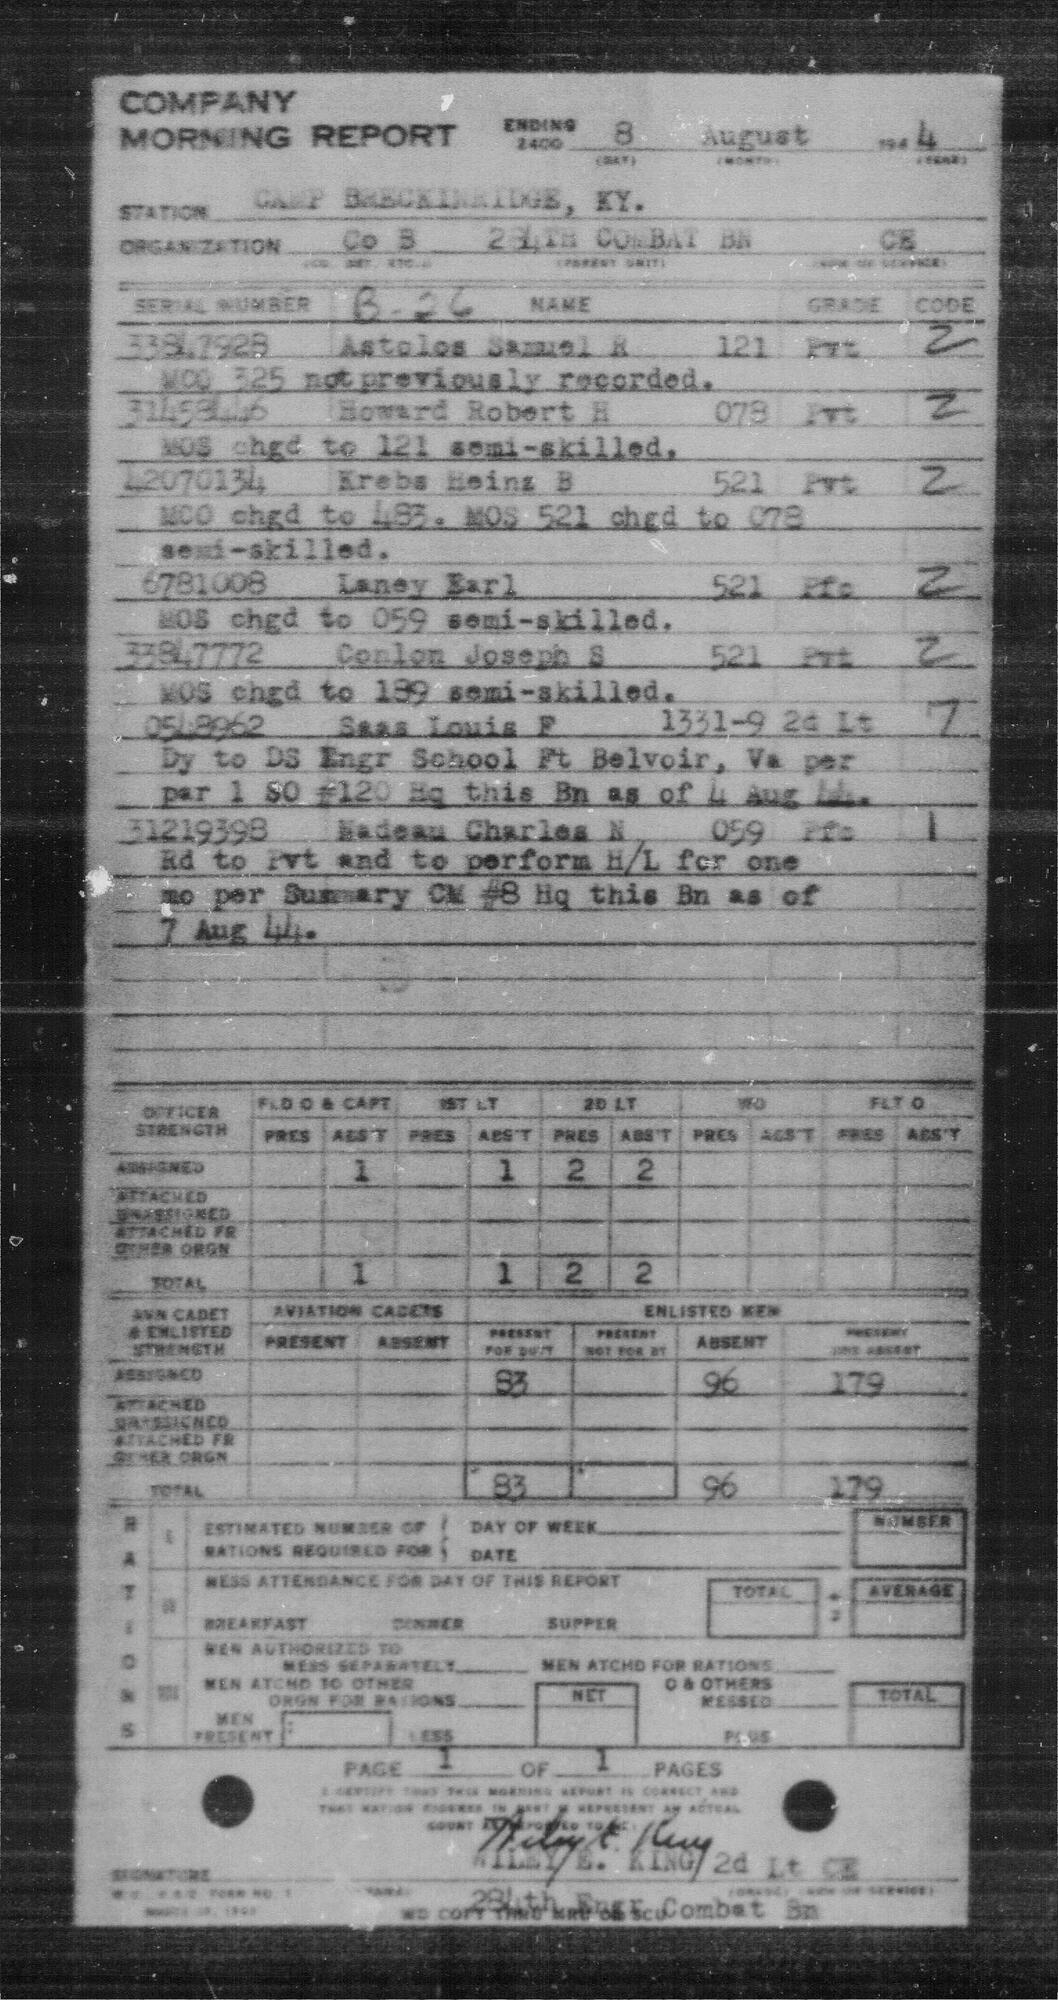 COMPANY
MORNING REPORT ENDING 2400 8 August 1944
(DAY) (MONTH) (YEAR)
STATION CAMP BRECKINRIDGE, KY.
ORGANIZATION Co B 284TH COMBAT BN CE
(CO. DET. ETC.) (PARENT UNIT) (ARM OR SERVICE)
SERIAL NUMBER B-26 NAME GRADE CODE
33847928 Astolos Samuel R 121 Pvt 2
MCO 325 not previously recorded.
31458446 Howard Robert H 078 Pvt 2
MOS chgd to 121 semi-skilled.
42070134 Krebs Heinz B 521 Pvt 2
MCO chgd to 483. MOS 521 chgd to 078
semi-skilled.
6781008 Laney Earl 521 Pfc 2
MOS chgd to 059 semi-skilled.
33847772 Conlon Joseph S 521 Pvt 2
MOS chgd to 189 semi-skilled.
0548962 Saas Louis F 1331-9 2d Lt 7
Dy to DS Engr School Ft Belvoir, Va per
par 1 SO #120 Hq this Bn as of 4 Aug 44.
31219398 Nadeau Charles N 059 Pfc 1
Rd to Pvt and to perform H/L for one
mo per Summary CM #8 Hq this Bn as of
7 Aug 44.
OFFICER STRENGTH FLD O & CAPT 1ST LT 2D LT WO FLT O
PRES ABS'T PRES ABS'T PRES ABS'T PRES ABS'T PRES ABS'T
ASSIGNED 1 1 2 2
ATTACHED UNASSIGNED
ATTACHED FR OTHER ORGN
TOTAL 1 1 2 2
AVN CADET & ENLISTED STRENGTH AVIATION CADETS ENLISTED MEN
PRESENT ABSENT PRESENT FOR DUTY PRESENT NOT FOR DY ABSENT PRESENT AND ABSENT
ASSIGNED 83 96 179
ATTACHED UNASSIGNED
ATTACHED FR OTHER ORGN
TOTAL 83 96 179
RATIONS
I ESTIMATED NUMBER OF RATIONS REQUIRED FOR DAY OF WEEK DATE NUMBER
II MESS ATTENDANCE FOR DAY OF THIS REPORT TOTAL ÷ 3 AVERAGE
BREAKFAST DINNER SUPPER
III MEN AUTHORIZED TO MESS SEPARATELY MEN ATCHD FOR RATIONS
MEN ATCHD TO OTHER ORGN FOR RATIONS NET O & OTHERS MESSED TOTAL
MEN PRESENT LESS PLUS
PAGE 1 OF 1 PAGES
I CERTIFY THAT THIS MORNING REPORT IS CORRECT AND
THAT RATION FIGURES IN PART II REPRESENT AN ACTUAL
COUNT AS REPORTED TO ME:
Wiley E. King
WILEY E. KING 2d Lt CE
SIGNATURE (NAME) (GRADE) (ARM OR SERVICE)
W.D., A.G.O. FORM NO. 1
284th Engr Combat Bn
WD COPY THRU MRU OR SCU